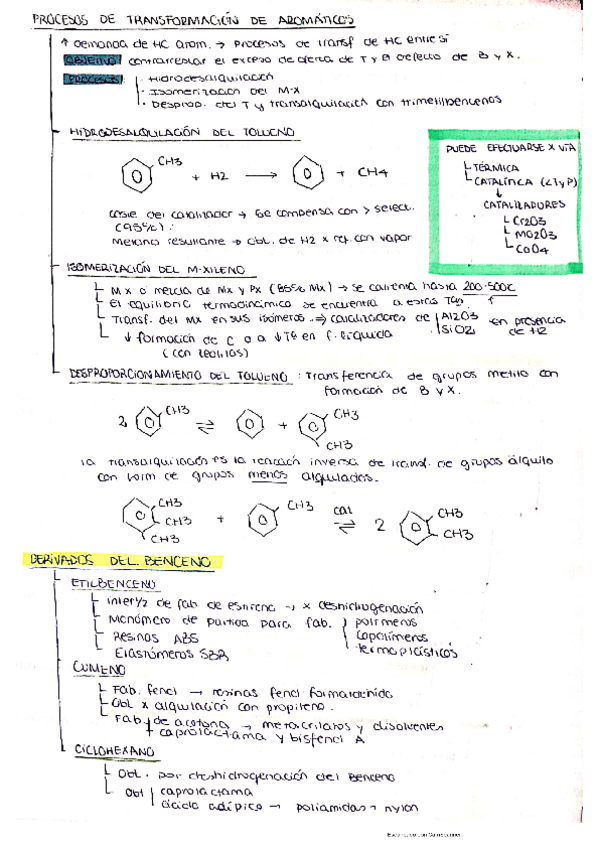 PROCESOS DE TRANSFORMACIÓN DE AROMÁTICOS
↑ demanda de HC arom. → Procesos de transf de HC entre sí
OBJETIVO contrarrestar el exceso de oferta de T y el defecto de B y X.
PROCESOS · Hidrodesalquilación
· Isomerización del M-X
· Desprop. del T y transalquilación con trimetilbencenos
HIDRODESALQUILACIÓN DEL TOLUENO
CH3 + H2 → + CH4
coste del catalizador → se compensa con > select.
(95%).
Metano resultante → obt. de H2 x ref. con vapor
PUEDE EFECTUARSE X VÍA
TÉRMICA
CATALÍTICA (<T y P)
CATALIZADORES
Cr2O3
Mo2O3
CoO4
ISOMERIZACIÓN DEL M-XILENO
Mx o mezcla de Mx y Px (85% Mx) → se calienta hasta 200-500ºC
El equilibrio termodinámico se encuentra a estas Tas ↑
Transf. del Mx en sus isómeros ⇒ catalizadores de Al2O3 SiO2 en presencia de H2
↓ formación de C o a ↓ Ta en f. líquida
(con zeolitas)
DESPROPORCIONAMIENTO DEL TOLUENO : Transferencia de grupos metilo con
formación de B y X.
2 CH3 ⇌ + CH3
CH3
la transalquilación es la reacción inversa de transf. de grupos alquilo
con form de grupos menos alquilados.
CH3 CH3 CH3 + CH3 cat ⇌ 2 CH3 CH3
DERIVADOS DEL BENCENO
ETILBENCENO
de fab de estireno → x deshidrogenación
Monómero de partida para fab. polímeros
copolímeros
termoplásticos
Resinas ABS
Elastómeros SBR
CUMENO
Fab. fenol → resinas fenol formaldehido
Obt x alquilación con propileno.
Fab de acetona → metacrilatos y disolventes
caprolactama y bisfenol A
CICLOHEXANO
Obt. por deshidrogenación del Benceno
Obt caprolactama
ácido adípico → poliamidas → nylon